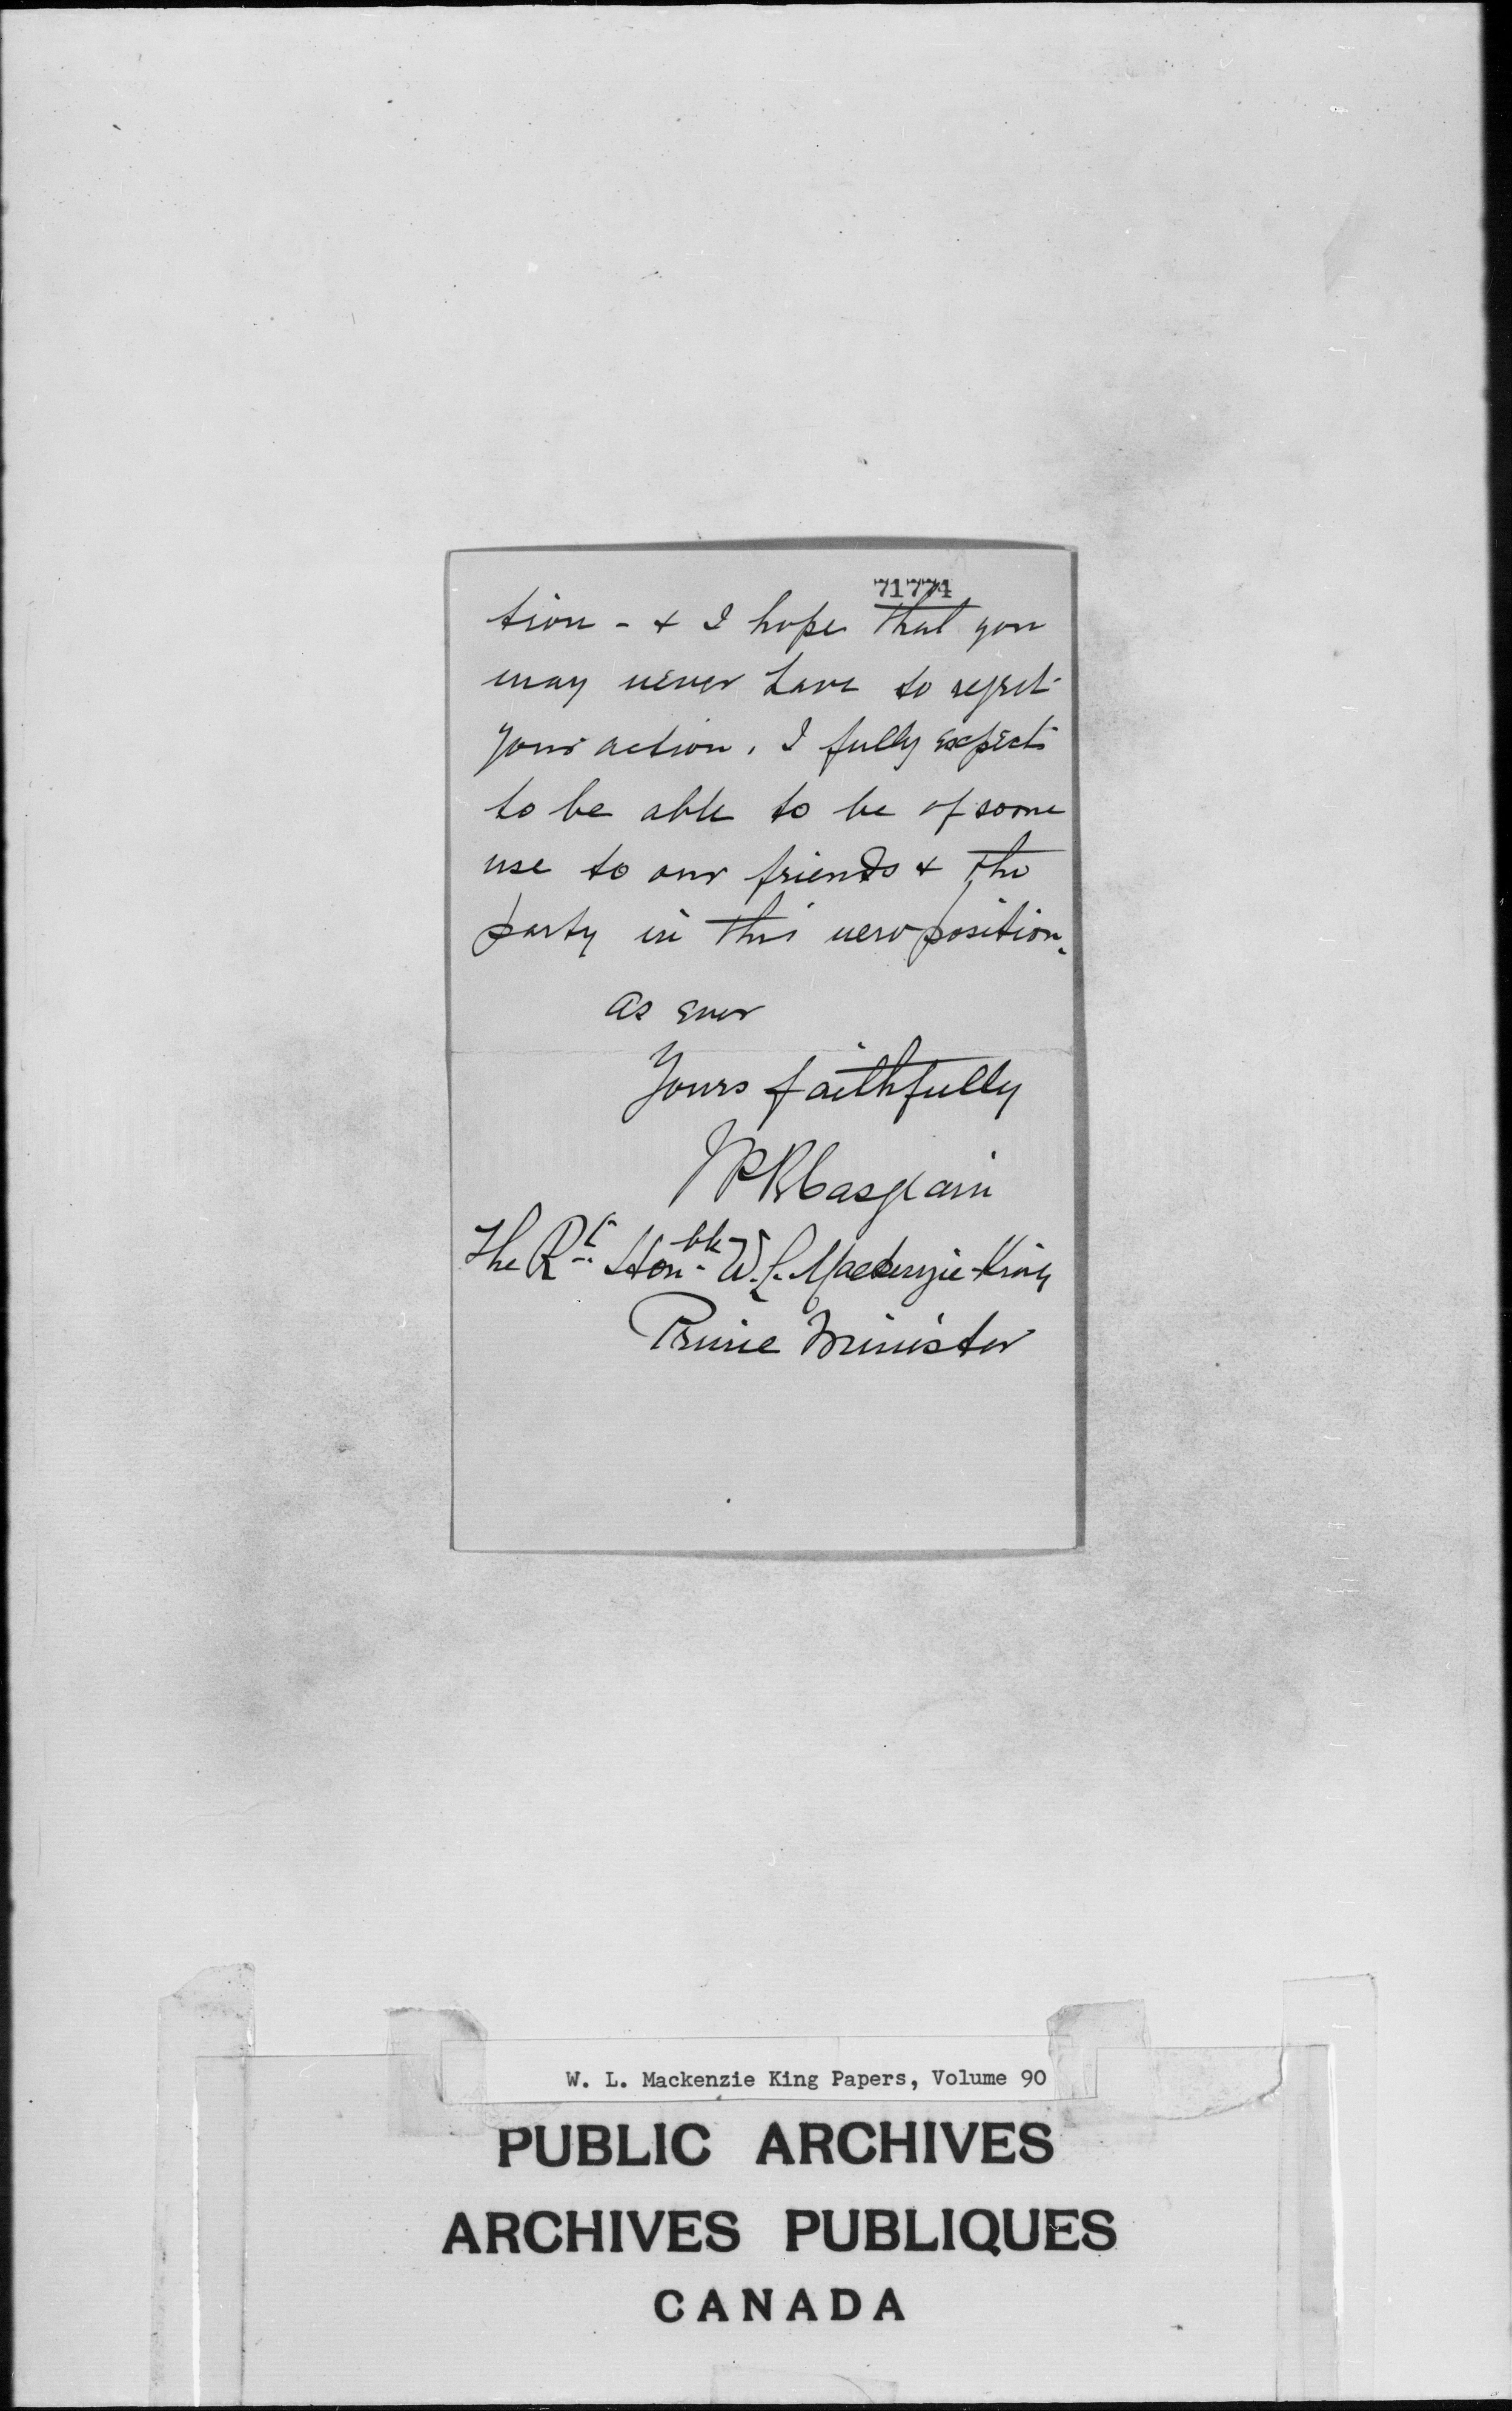 71774
tion - & I hope that you
may never have to regret
your action. I fully expect
to be able to be of some
use to our friends & the
party in this new position.
as ever
Yours faithfully
JPBCasgrain
The Rt. Hon.ble W. L. Mackenzie-King
Prime Minister
W. L. Mackenzie King Papers, Volume 90
PUBLIC ARCHIVES
ARCHIVES PUBLIQUES
CANADA